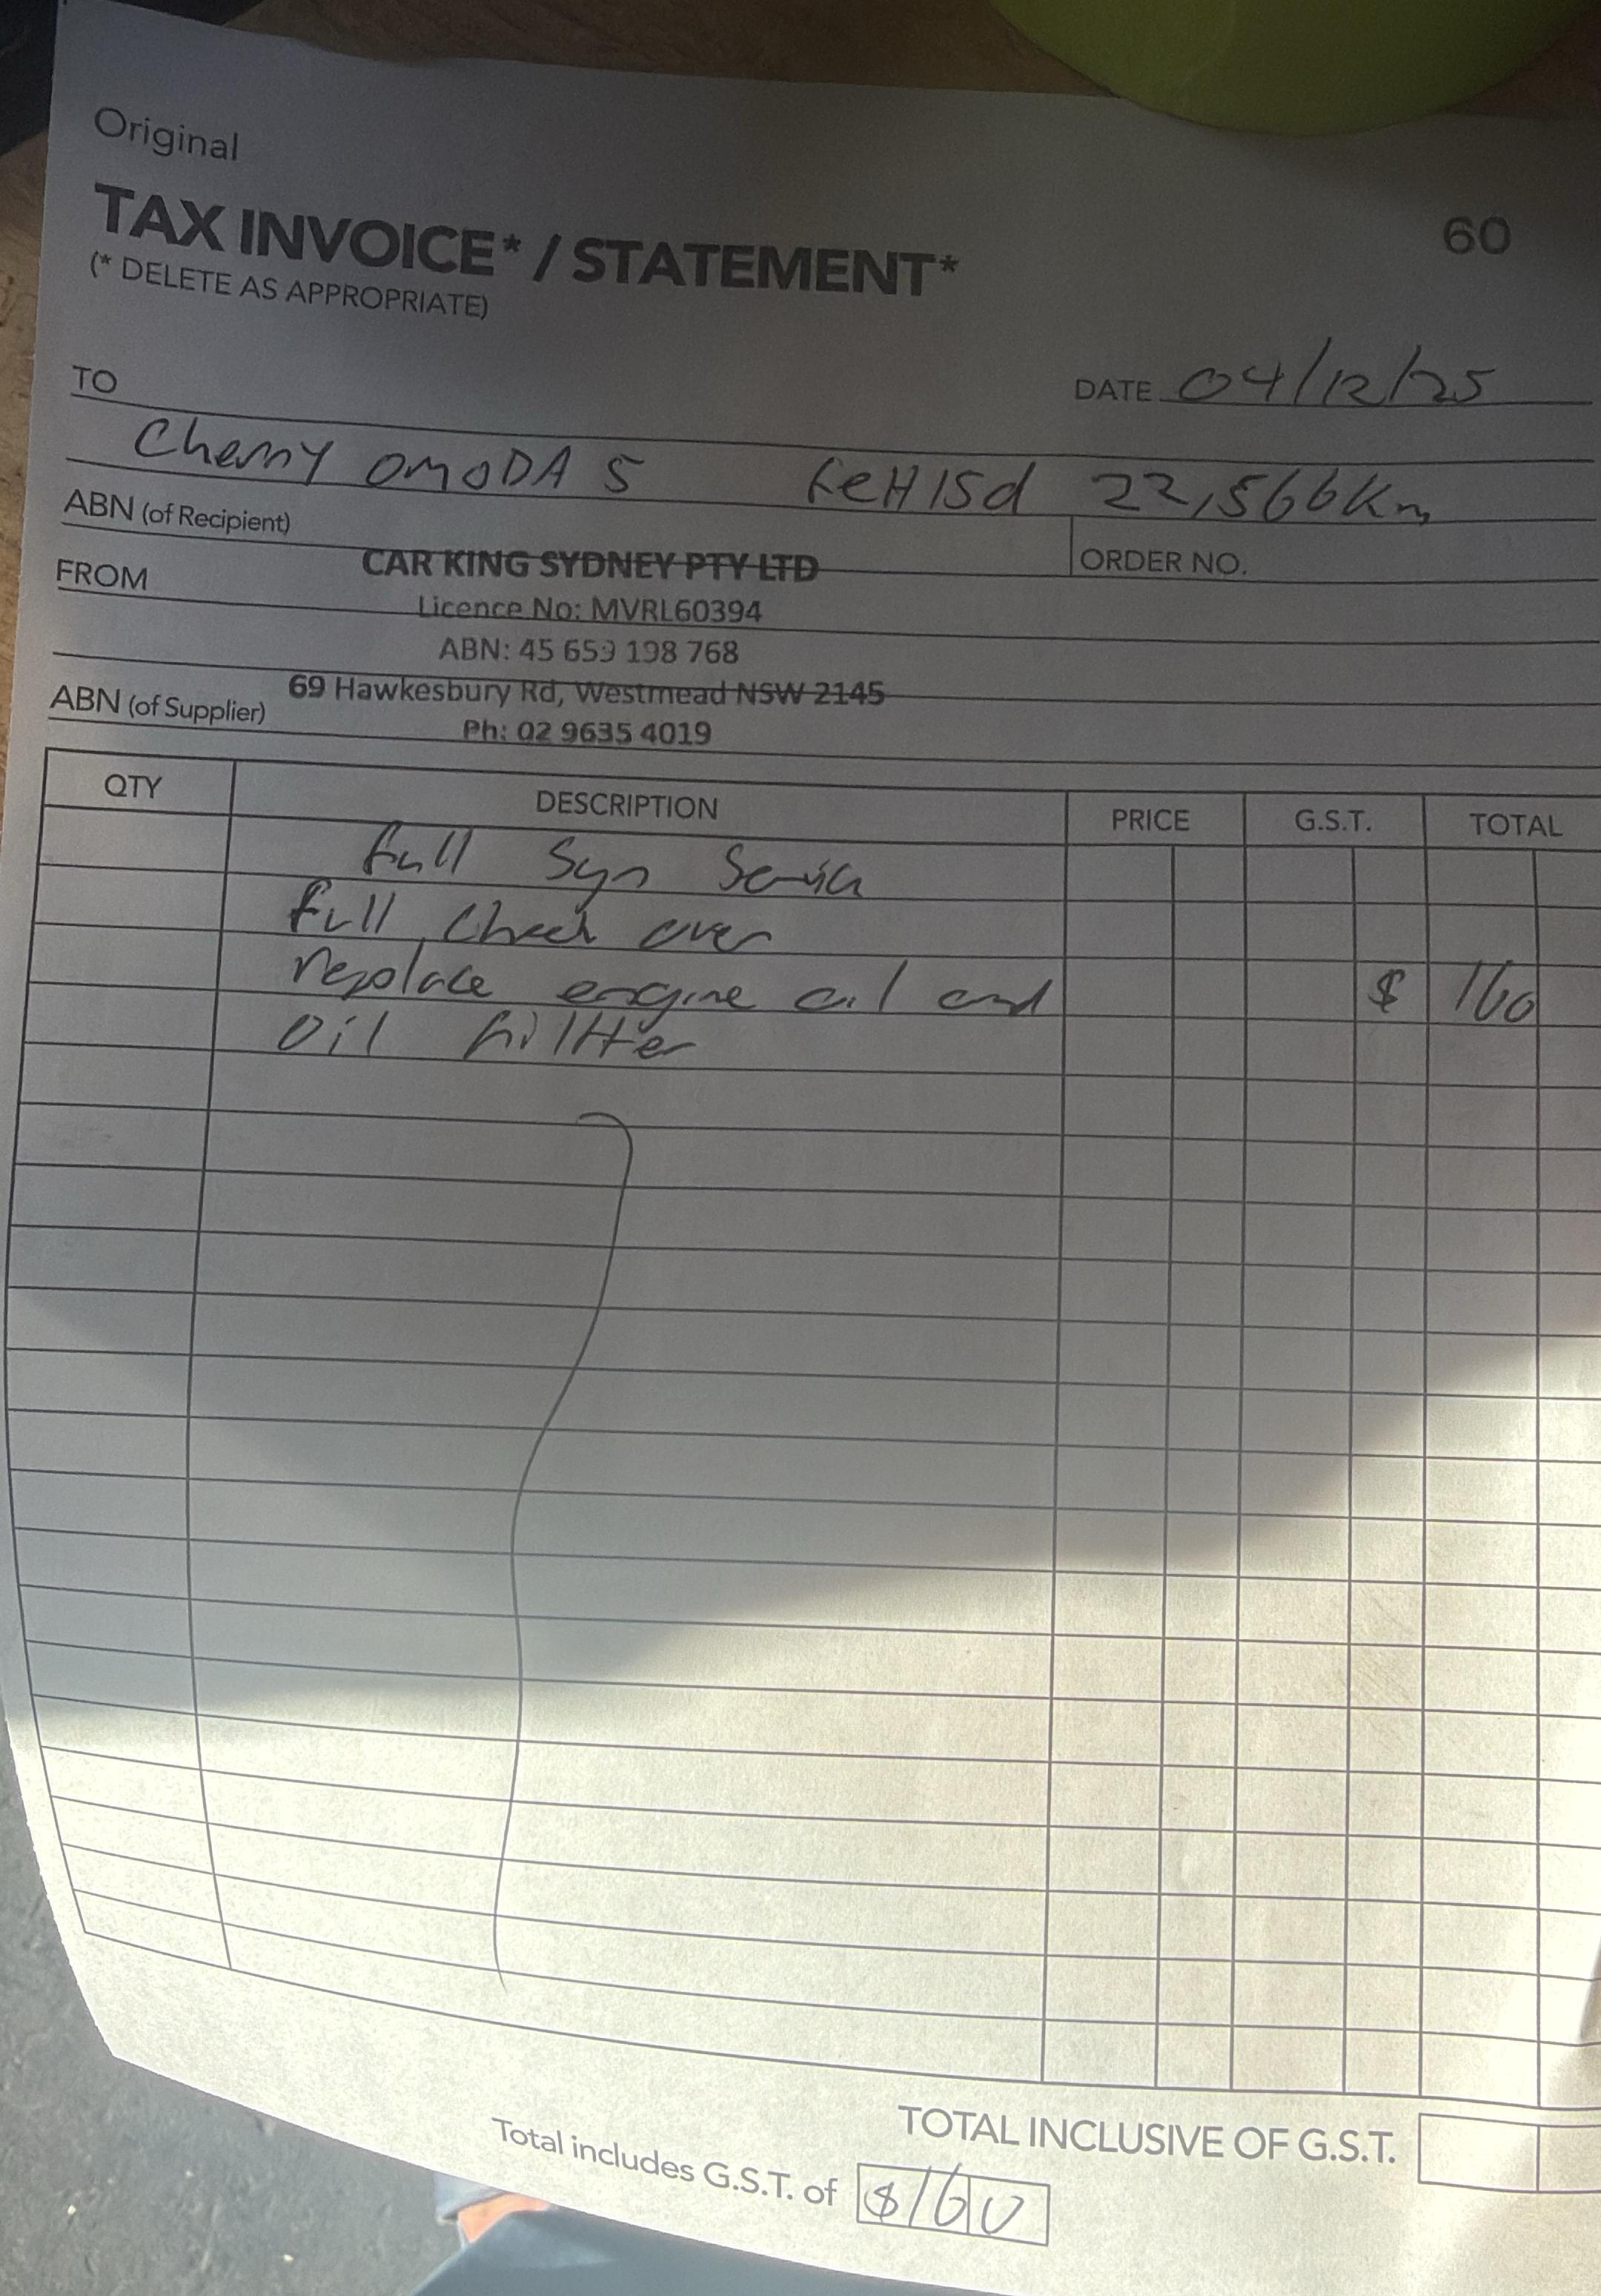 Original
TAX INVOICE* / STATEMENT*
60
(* DELETE AS APPROPRIATE)
TO
DATE 04/12/25
Cherry OMODA 5 FeH15d 22,566Km
ABN (of Recipient)
ORDER NO.
FROM
CAR KING SYDNEY PTY LTD
Licence No: MVRL60394
ABN: 45 659 198 768
69 Hawkesbury Rd, Westmead NSW 2145
ABN (of Supplier)
Ph: 02 9635 4019
QTY DESCRIPTION PRICE G.S.T. TOTAL
full Syn Servic
full check over
replace engine oil and $ 160
oil fillter
TOTAL INCLUSIVE OF G.S.T.
Total includes G.S.T. of $160